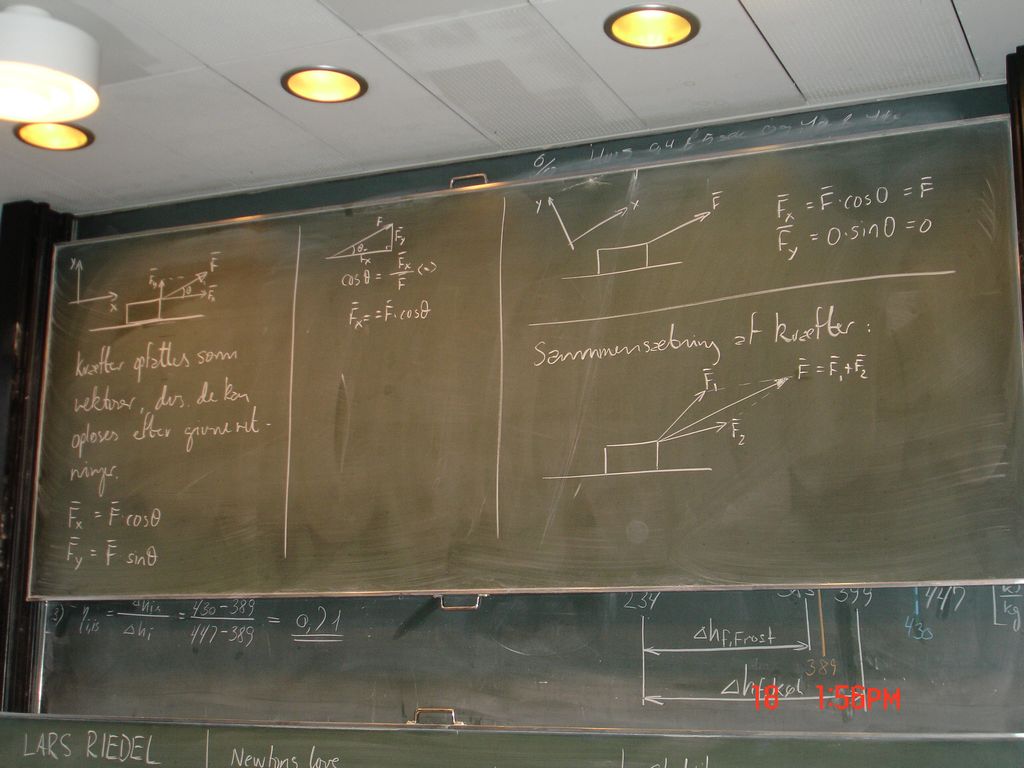 y
x
F̄y
F̄
θ
F̄x
Kræfter opfattes som
vektorer, dvs. de kan
opløses efter givne ret-
ninger.
F̄x = F̄·cosθ
F̄y = F̄ sinθ
F
F̄y
θ
Fx
cosθ = F̄x/F̄
F̄x = F̄·cosθ
y
x
F̄
F̄x = F̄·cos0 = F̄
F̄y = 0·sin0 = 0
Sammensætning af kræfter:
F̄1
F̄ = F̄1+F̄2
F̄2
3)
= = 430-389 / 447-389 = 0,71
Δhi
234
399
447
430
kg
Δhf,Frost
389
18 1:56PM
LARS RIEDEL
Newtons love